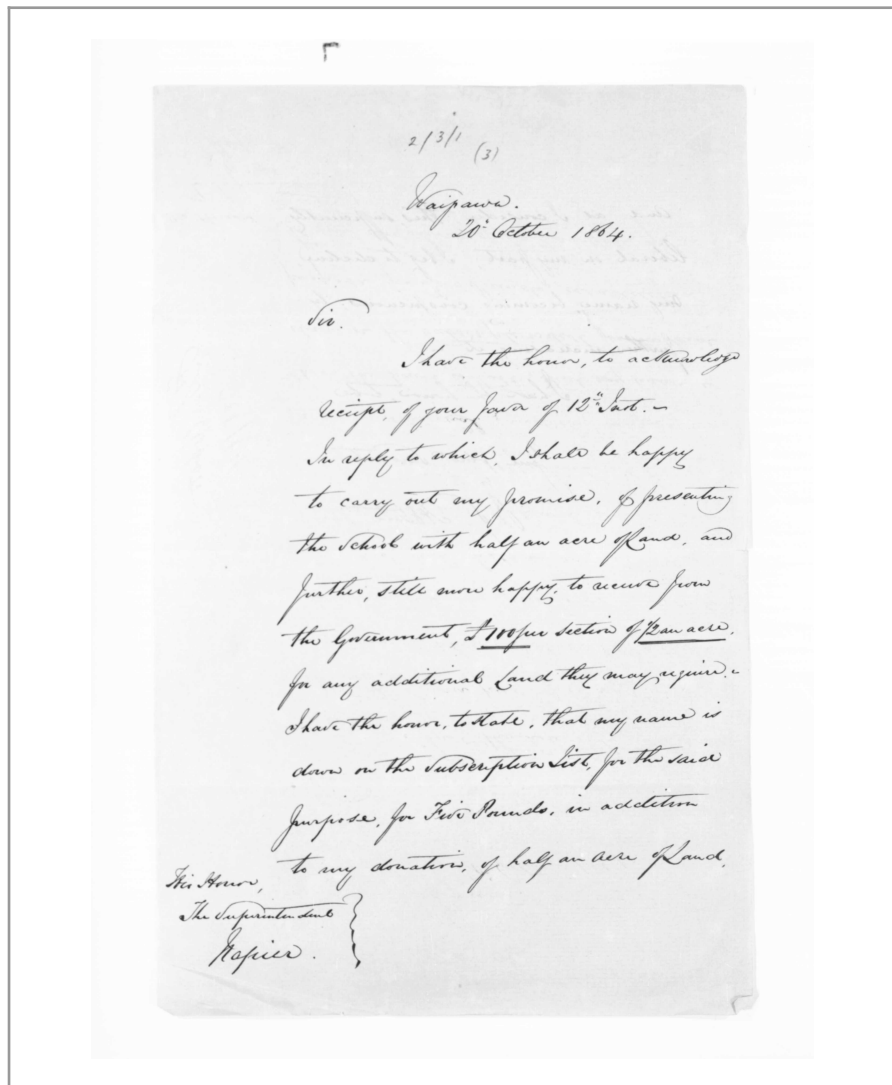 2/3/1
(3)
Waipawa.
20th October 1864.
Sir.
I have the honor, to acknowledge
receipt, of your favor of 12th Inst. -
In reply to which, I shall be happy
to carry out my promise, of presenting
the School with half an acre of Land, and
further, still more happy, to receive from
the Government, £100 per section of 1/2 an acre,
for any additional Land they may require. -
I have the honor, to state, that my name is
down on the Subscription List, for the said
purpose, for Five Pounds, in addition
to my donation, of half an acre of Land,
His Honor,
The Superintendent
Napier.